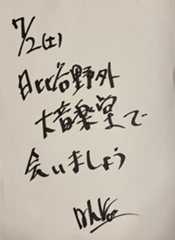 7/2(土)
日比谷野外
大音楽堂で
会いましょう